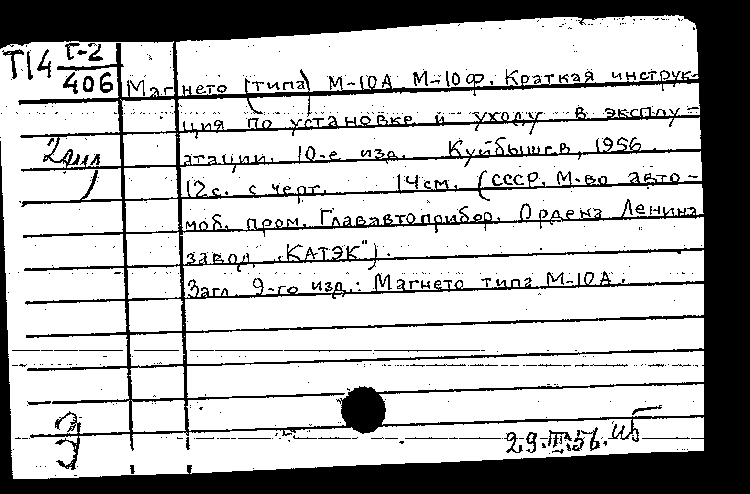 Т14 Г-2
406
Магнето (типа) М-10А М-10Ф. Краткая инструк-
ция по установке и уходу в эксплу-
атации. 10-е изд. Куйбышев, 1956.
12с. с черт. 14см. (СССР. М-во авто-
моб. пром. Глававтоприбор. Ордена Ленина
завод „КАТЭК").
Загл. 9-го изд.: Магнето типа М-10А.
29.III.56.